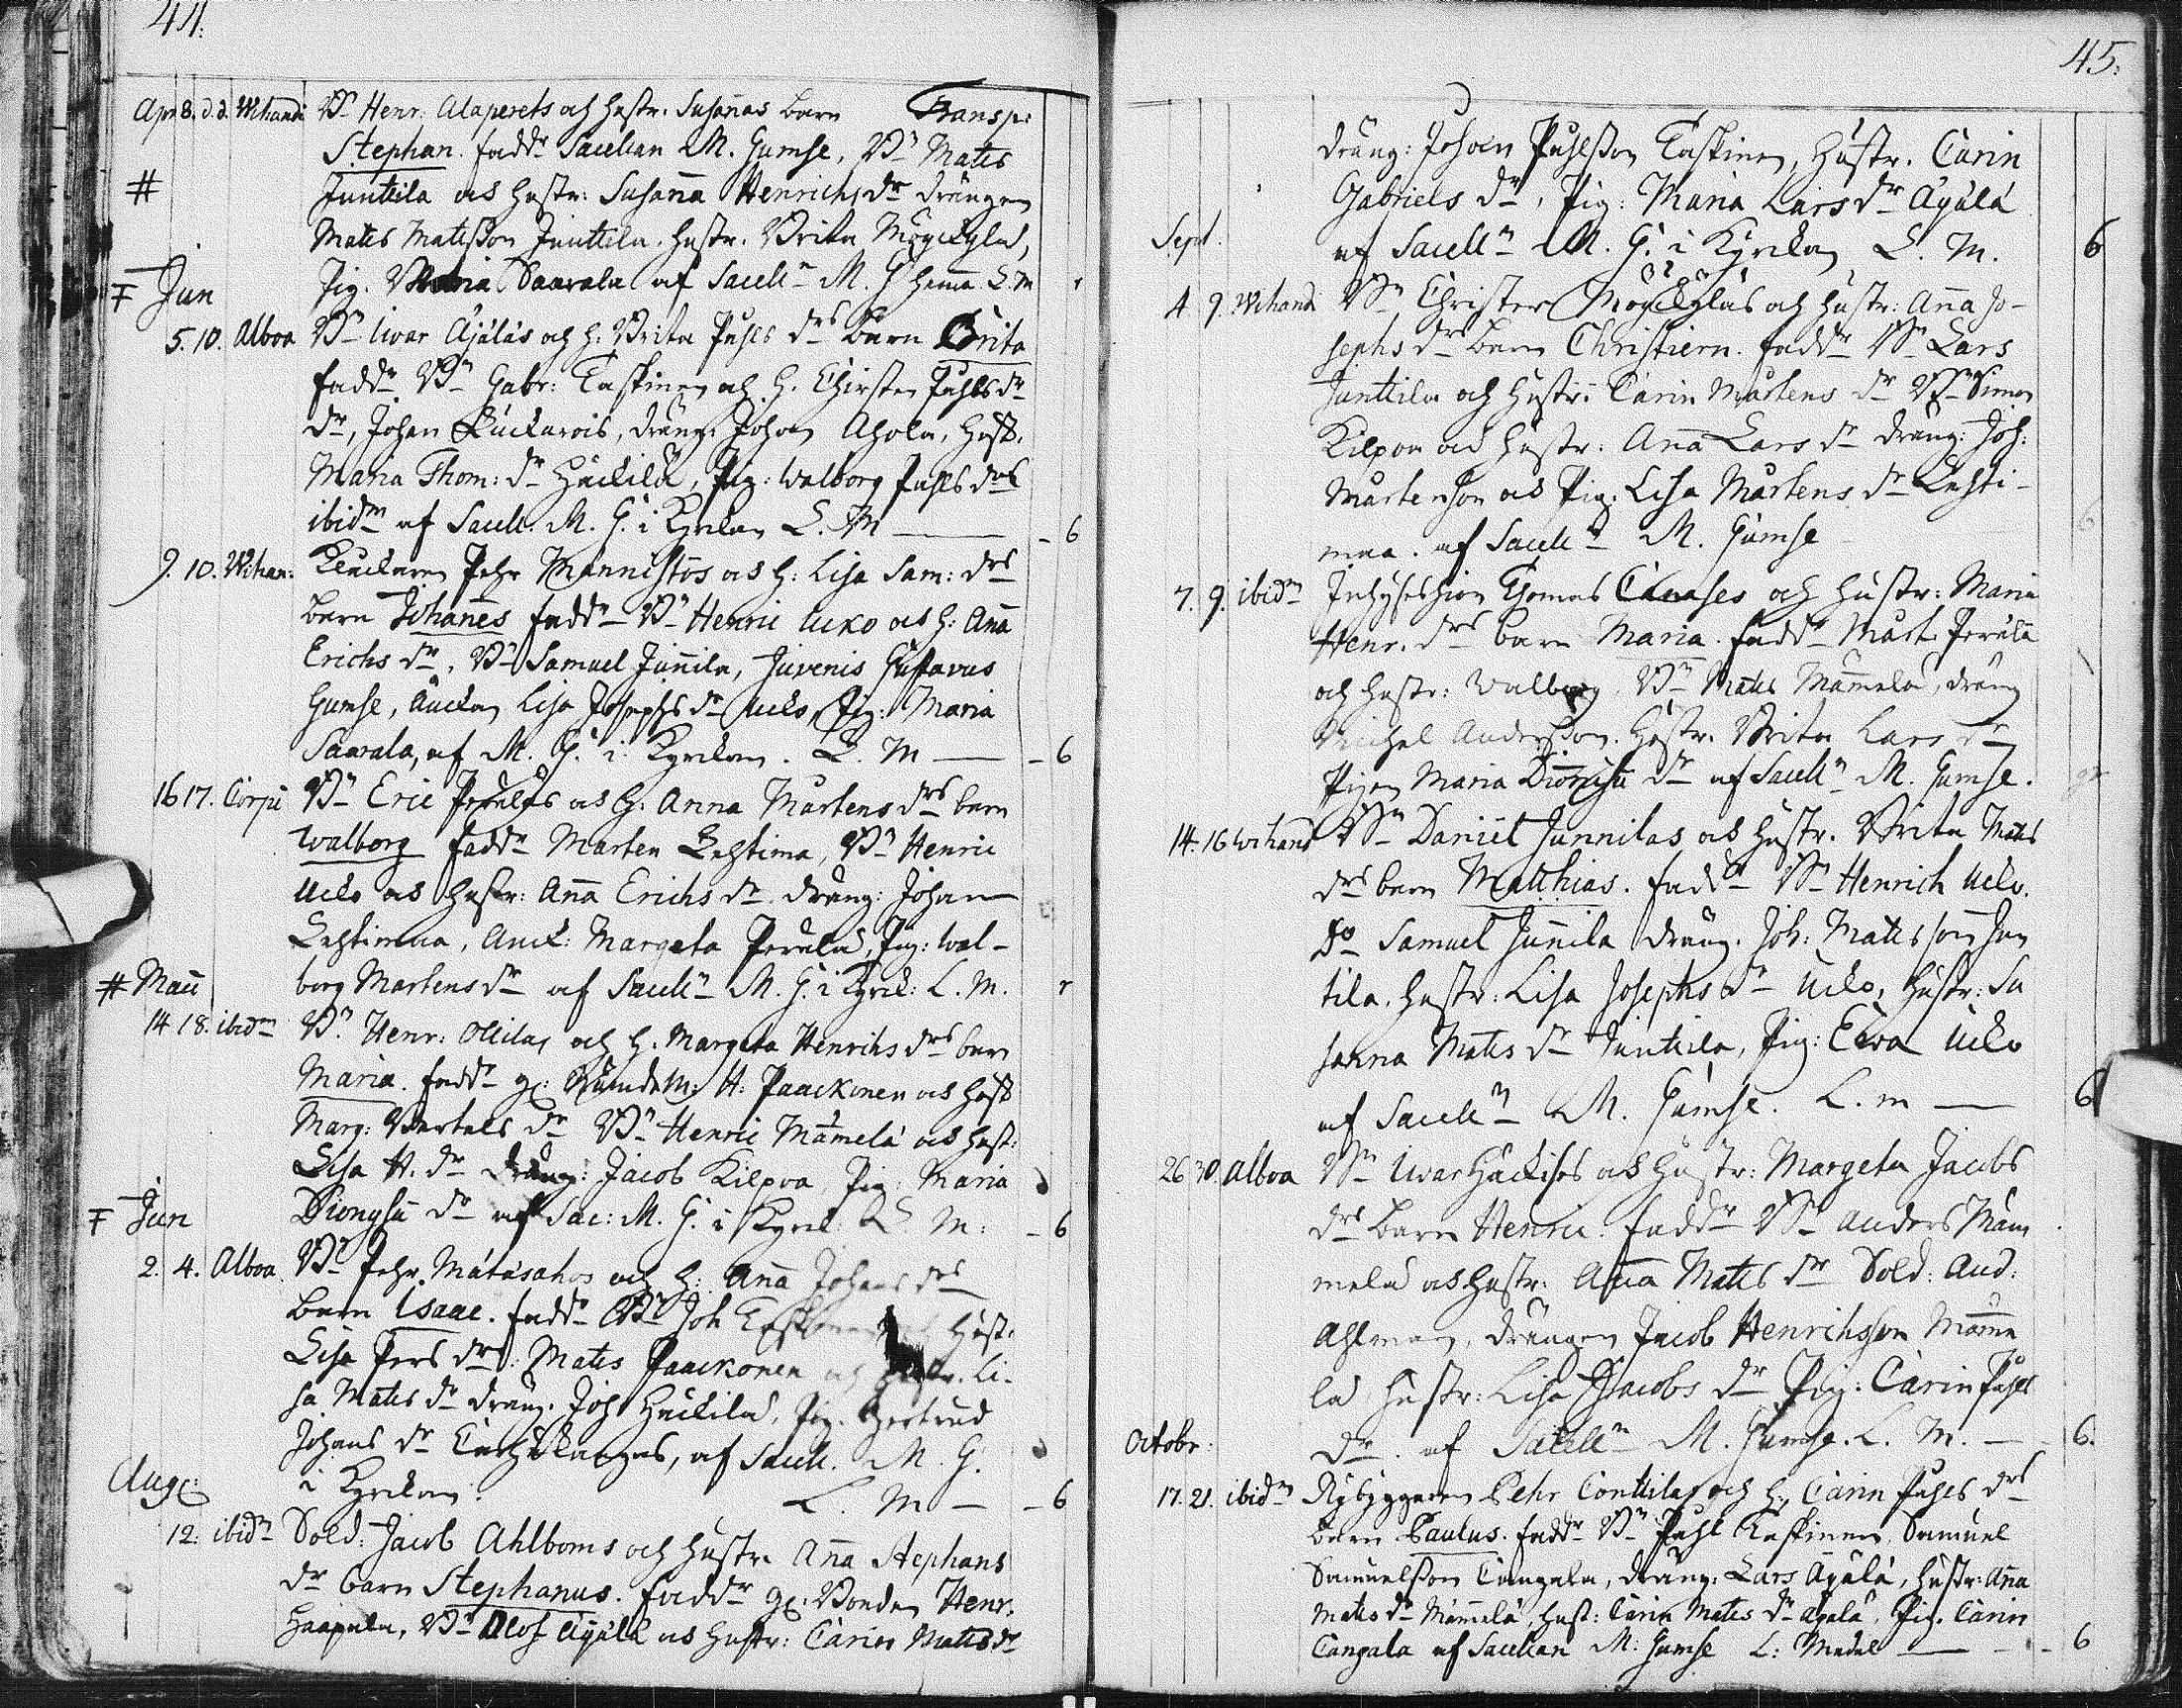 44.
Apr 8. d. d. Wihandi Bn Henr: Alaperets och hustr. Susannas barn Transp:
Stephan. faddr Sacellan M. Gumse, Bn Matts
# Junttila och hustr: Susanna Henrichs dr drängen
Matts Matsson Junttila. hustr. Brita Möyckylä,
Pig. Maria Saarala af Sacelln M. G hemma L. M
Jun
5. 10. Alboa Bn Ivar Äjäläs och h. Brita Påhls drs barn Brita
faddr Bn Gabr: Taskinen och h. Chirstin Påhls dr
dr, Johan , dräng. Johan Ahola, Hust.
Maria Thom: dr Häckilä, Pig: Walborg Påhls dr
ibidm af Sacell. M. G. i Kyrkan L. M — 6
9. 10. Wihan: Klockaren Pehr Mannistös och h: Lisa Sam: drs
barn Johannes faddr Bn Henric Ucko och h: Anna
Erichs dr, Bn Samuel Junnila, Juvenis Gustavus
Gumse, Änckan Lisa Josephs dr Ucko, Pig: Maria
Saarala, af M. G. i Kyrckan. L. M — 6
16 17. Corpi Bn Eric Peräläs och h: Anna Mårtens drs barn
Walborg faddr Marten Lehtima, Bn Henric
Ucko och hustr: Anna Erichs dr. dräng: Johan
Lehtimaa, Anck: Margeta Perälä, Pig: Wal-
# Maii borg Martens dr af Sacelln M. G. i Kyrck: L. M. r
14 18. ibidm Bn Henr: Ollilas och h. Margeta Henrichs drs barn
Maria. faddr gl: Rundtm: H: Paackonen och hust
Marg: Bertels dr Bn Henric Mämelä och hust:
Lisa H. dr dräng: Jacob Kilpoa, Pig: Maria
Jun Dionysii dr af Sac: M. G. i Kyrck L. M: 6
2. 4. Alboa. Bn Pehr Matasahos och h: Anna Johans drs
barn Isaac. faddr Bn Joh hust.
Lisa Pers dr: Matts Paackonen och hustr. Li-
sa Matts dr dräng. Joh Häckilä, Pig. Gertrud
Johans dr , af Sacell. M. G.
Aug: i Kyrckan. L. M — 6
12: ibidm Sold: Jacob Ahlboms och hustr Anna Stephans
dr barn Stephanus. faddr gl: Bonden Henr:
Haapala, Bn Olof Äijälä och hustr: Carin Matts dr
45.
dräng: Johan Påhlsson Taskinen, hustr. Carin
Gabriels dr, Pig: Maria Lars dr Äyälä
Sept. af Sacelln M. G. i Kyrckan L. M. 6
4 9. Wihand Bn Christer Möyckyläs och hustr: Anna Jo-
sephs drs barn Christiern. faddr Bn Lars
Junttila och hustr: Carin Mårtens dr Bn Simon
Kilpoa och hustr: Anna Lars dr dräng: Joh:
Mårtenson och Pig: Lisa Mårtens dr Lehti-
maa. af Sacelln M. Gumse
7. 9. ibidm Inhyseshion Thomas och hustr: Maria
Henr. drs barn Maria. faddr Mårt. Perälä
och hustr: Walborg. Bn Matts Mämmelä, dräng
Michel Andersson. Hustr. Brita Lars dr
Pigan Maria Dionysii dr af Sacelln M. Gumse.
14. 16 Wihand Bn Daniel Junnilas och hustr. Brita Matts
drs barn Matthias. faddr Bn Henrich Ucko.
Do Samuel Junnila dräng. Joh: Mattsson Jun
tila. hustr: Lisa Josephs dr Ucko, hustr: Su
sanna Matts dr Junttila, Pig: Ewa Ucko
af Sacelln M. Gumse. L. m — 6
26 30. Alboa Bn Ivar Häckiläs och hustr: Margeta Jacobs
drs barn Henric. faddr Bn Anders Mäm
melä och hustr: Anna Matts dr Sold: And:
Ahlman, drängen Jacob Henrichsson Mämme
lä, hustr: Lisa Jacobs dr Pig: Carin Påhls
Octobr: dr. af Sacelln M. Gumse. L. M. — 6.
17. 21. ibidm Nybyggaren Pehr Conttilas och h. Carin Påhls drs
barn Paulus. faddr Bn Påhl Taskinen, Samuel
Samuelsson Cangala, dräng: Lars Äyälä, hustr: Anna
Matts dr Mämmelä, hust: Carin Matts dr Äyälä, Pig. Carin
Cangala af Sacellan M: Gumse L: Medel — 6